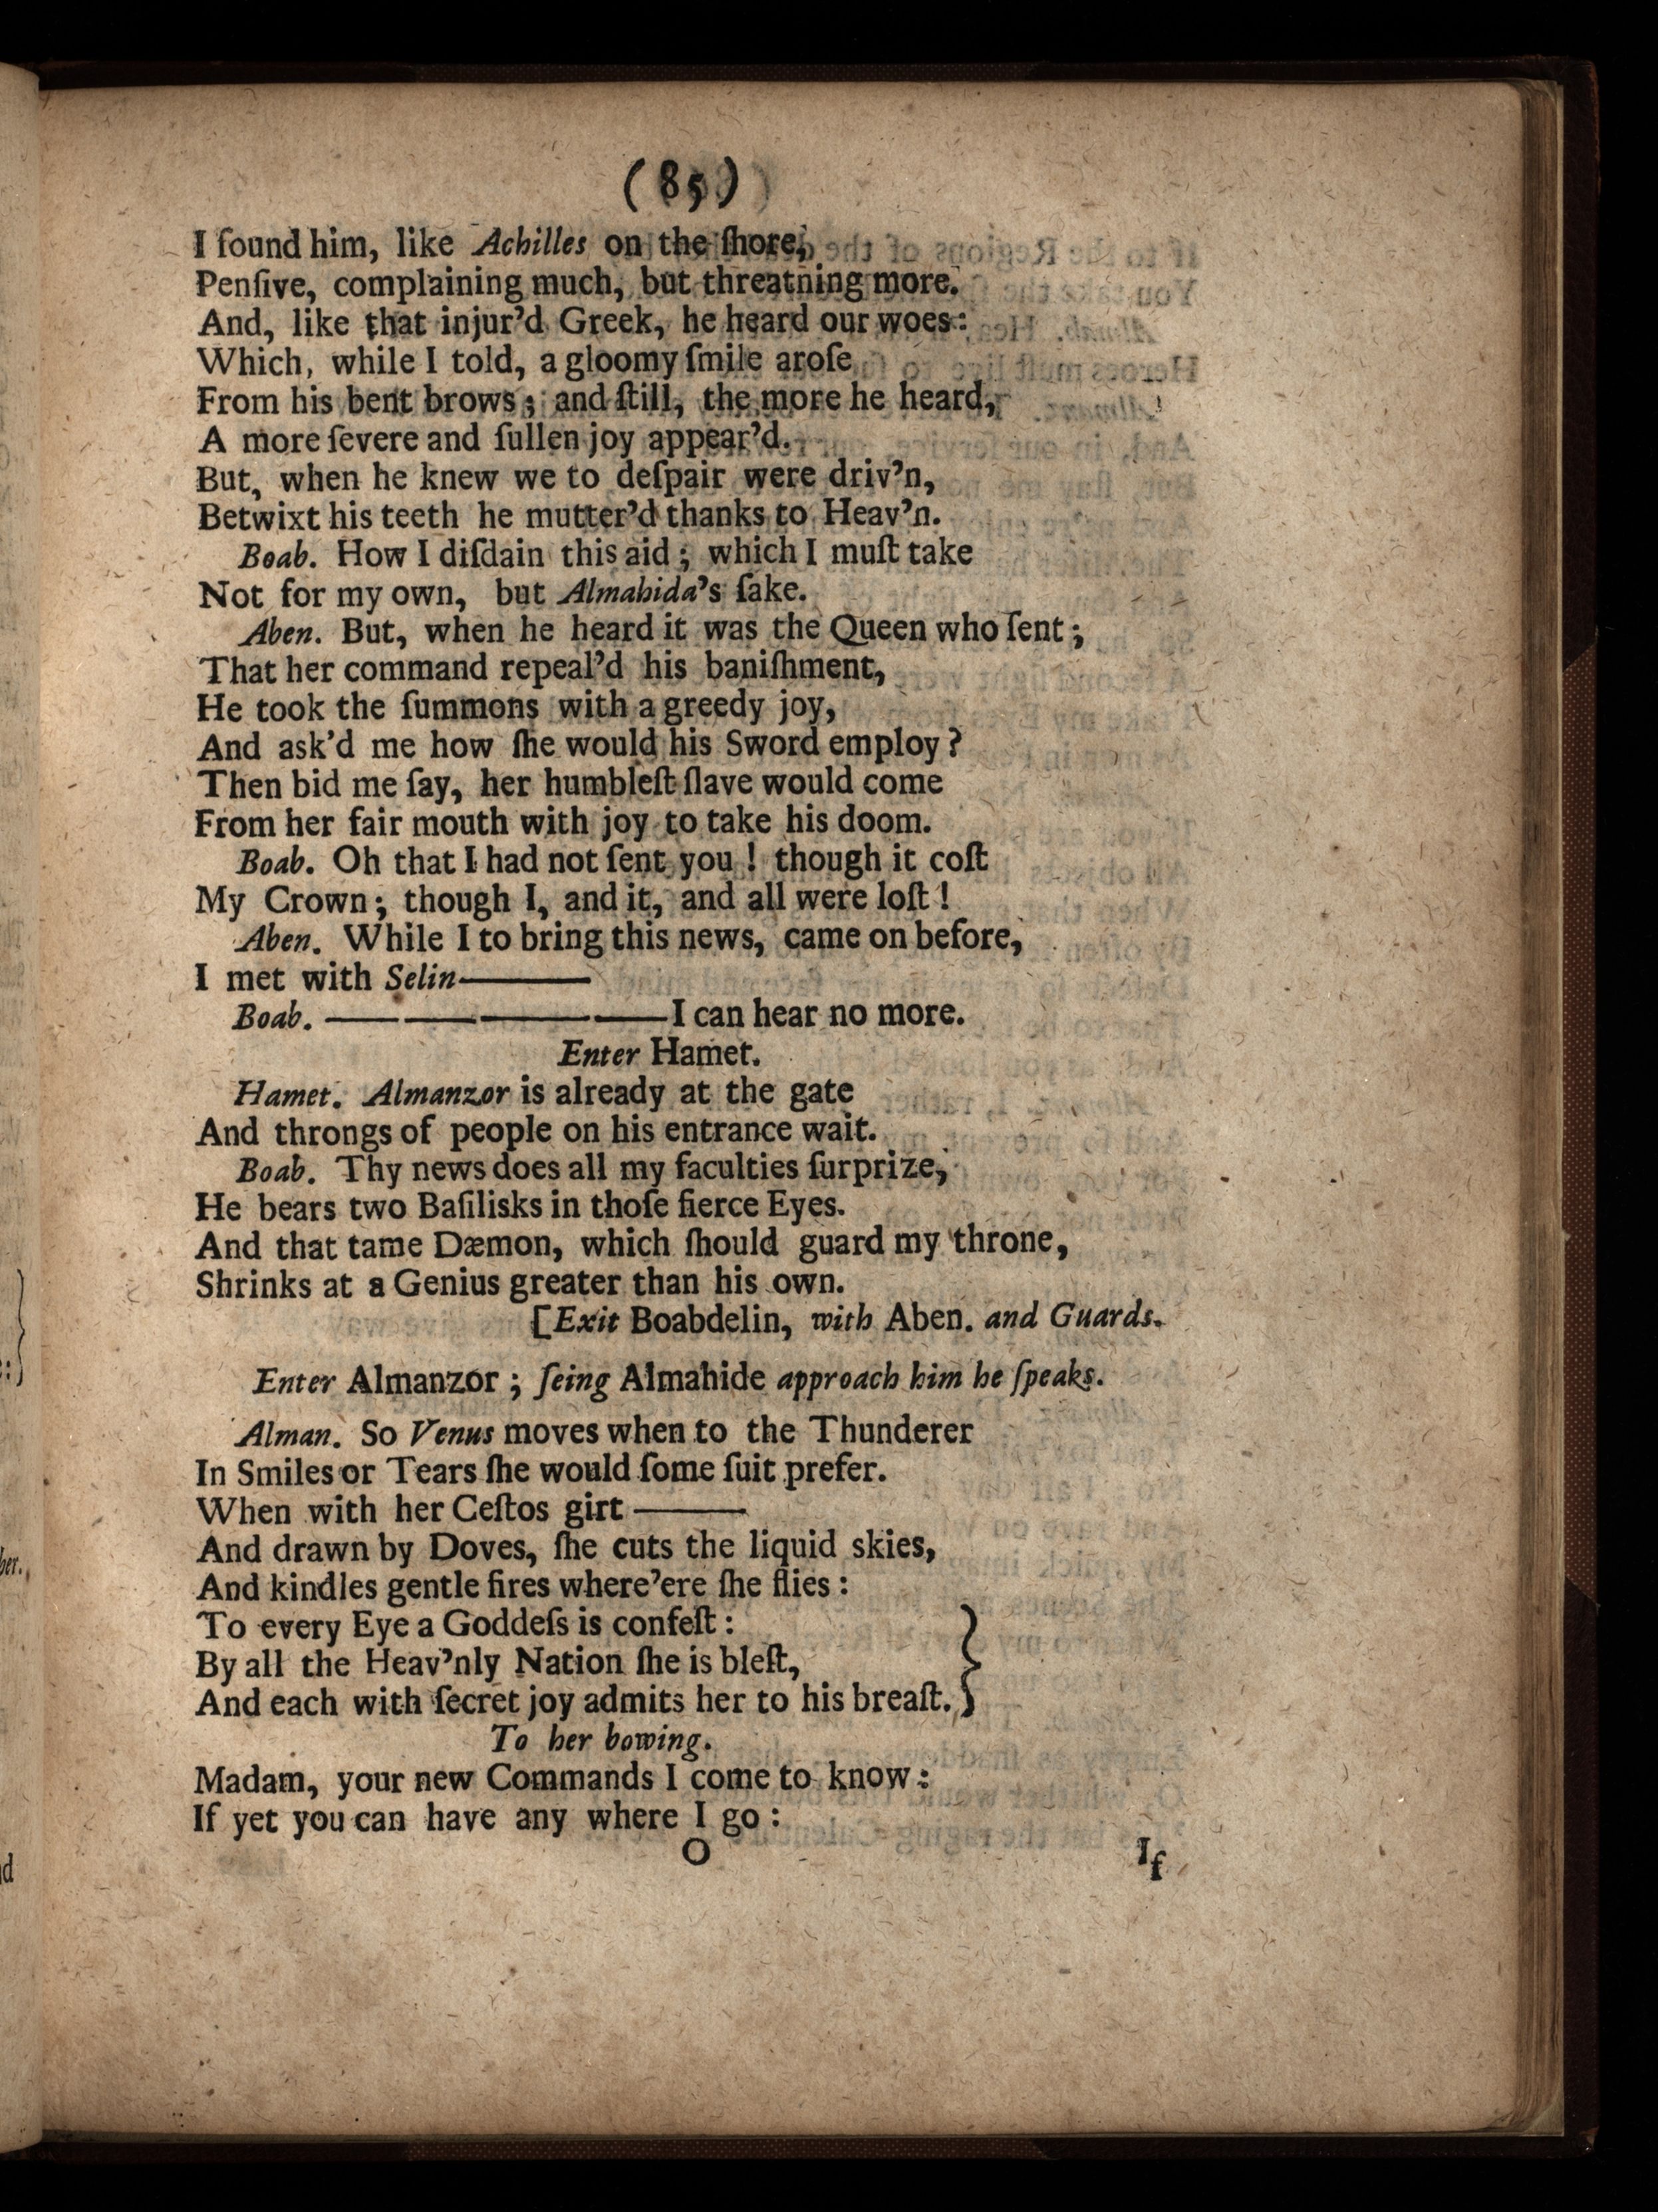 (85)
I found him, like Achilles on the ſhore,
Penſive, complaining much, but threatning more.
And, like that injur’d Greek, he heard our woes:
Which, while I told, a gloomy ſmile aroſe
From his bent brows; and ſtill, the more he heard,
A more ſevere and ſullen joy appear’d.
But, when he knew we to deſpair were driv’n,
Betwixt his teeth he mutter’d thanks to Heav’n.
Boab. How I diſdain this aid; which I muſt take
Not for my own, but Almahida’s ſake.
Aben. But, when he heard it was the Queen who ſent;
That her command repeal’d his baniſhment,
He took the ſummons with a greedy joy,
And ask’d me how ſhe would his Sword employ?
Then bid me ſay, her humbleſt ſlave would come
From her fair mouth with joy to take his doom.
Boab. Oh that I had not ſent you! though it coſt
My Crown; though I, and it, and all were loſt!
Aben. While I to bring this news, came on before,
I met with Selin———
Boab. —— —— ——— ——I can hear no more.
Enter Hamet.
Hamet. Almanzor is already at the gate
And throngs of people on his entrance wait.
Boab. Thy news does all my faculties ſurprize,
He bears two Baſilisks in thoſe fierce Eyes.
And that tame Dæmon, which ſhould guard my throne,
Shrinks at a Genius greater than his own.
[Exit Boabdelin, with Aben. and Guards.
Enter Almanzor; ſeing Almahide approach him he ſpeaks.
Alman. So Venus moves when to the Thunderer
In Smiles or Tears ſhe would ſome ſuit prefer.
When with her Ceſtos girt ———
And drawn by Doves, ſhe cuts the liquid skies,
And kindles gentle fires where’ere ſhe flies:
To every Eye a Goddeſs is confeſt:
By all the Heav’nly Nation ſhe is bleſt,
And each with ſecret joy admits her to his breaſt.}
To her bowing.
Madam, your new Commands I come to know:
If yet you can have any where I go:
O If